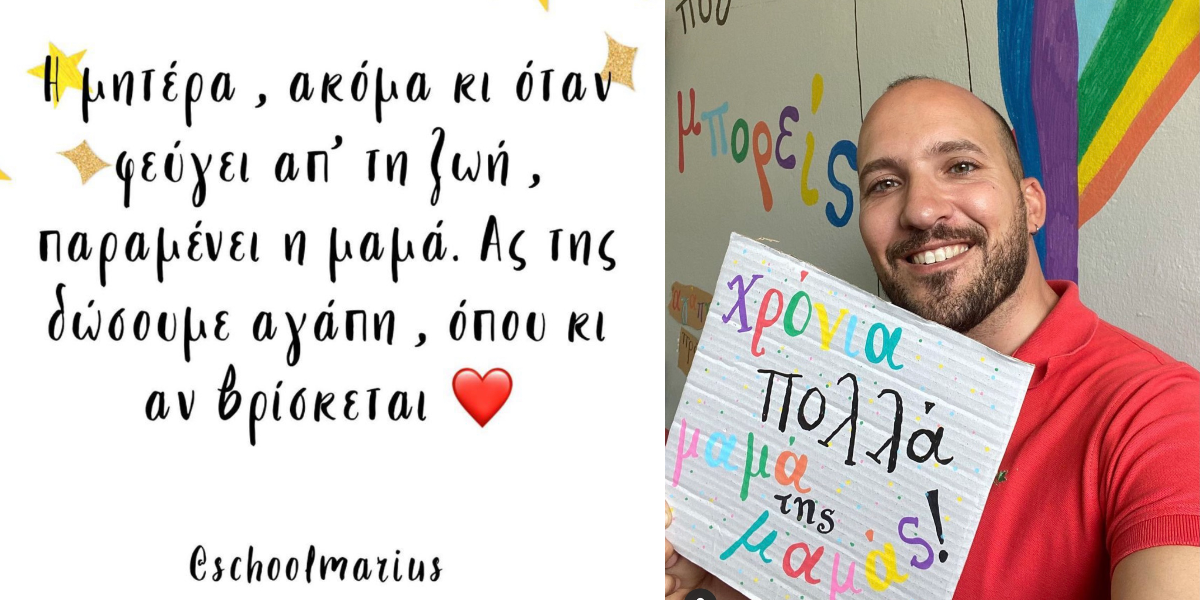 Η μητέρα , ακόμα κι όταν
φεύγει απ' τη ζωή ,
παραμένει η μαμά. Ας της
δώσουμε αγάπη , όπου κι
αν βρίσκεται ❤️
@schoolmarius
που
μπορείς
χρόνια
πολλά
μαμά
της
μαμάς!